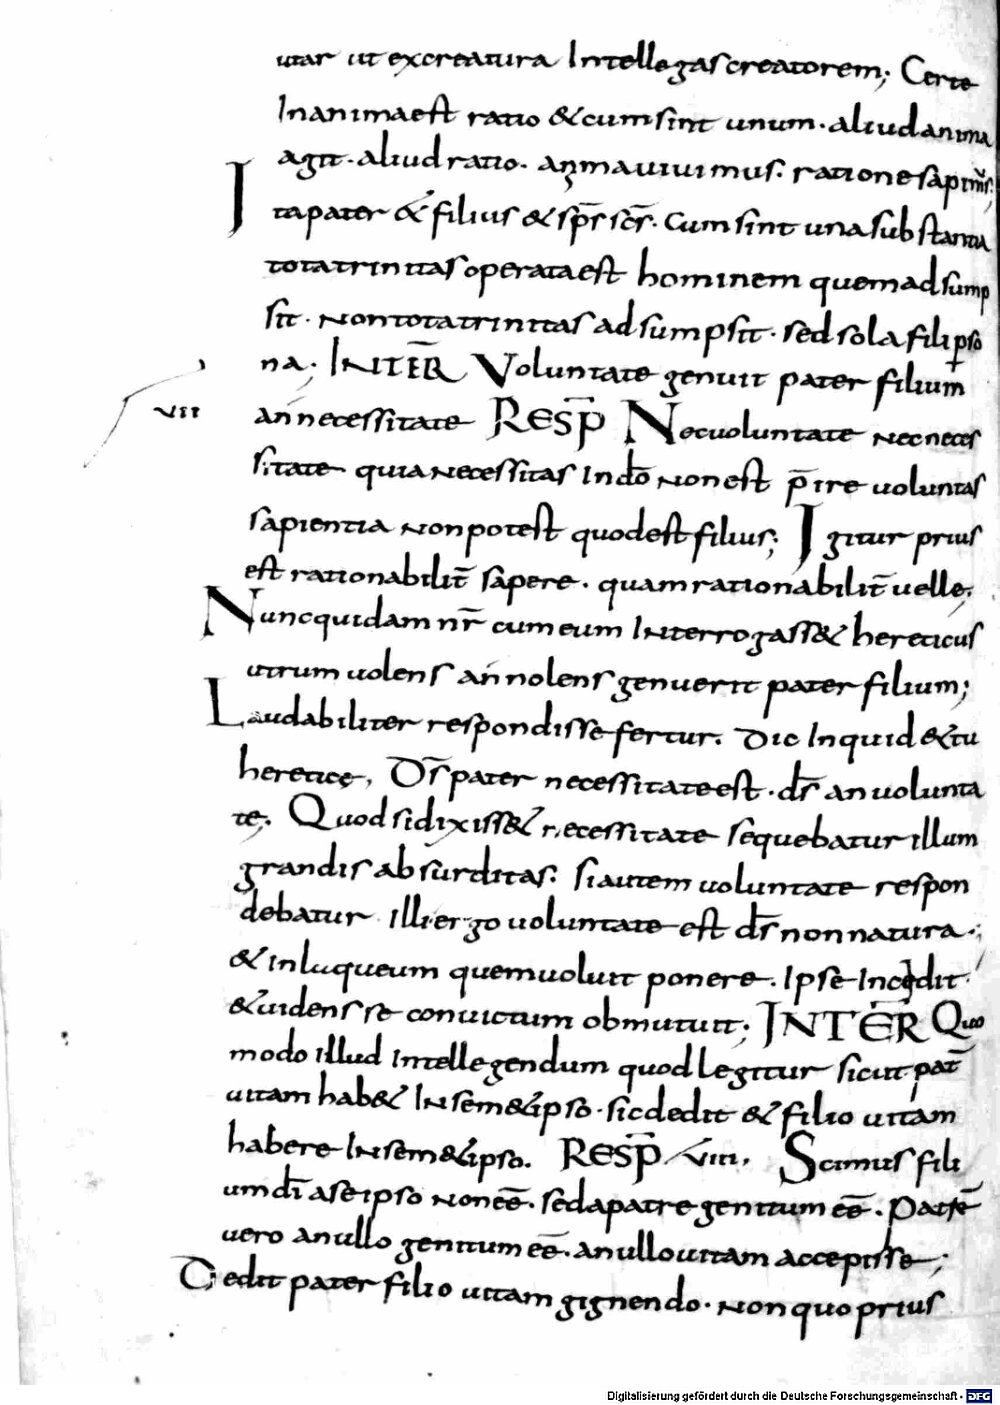 utar ut excreatura Intellegas creatorem; Certe
Inanima est ratio & cum sint unum. aliud anima
agit. aliud ratio. anima uiuimus. ratione sapim̅s;
Ita pater & filius & sp̅s sc̅s. Cum sint una substantia
tota trinitas operata est hominem quem adsump
sit. Non tota trinitas adsumpsit. sed sola fili pso
na; INTER̅ Voluntate genuit pater filium
VII an necessitate RESP̅ Nec uoluntate nec neces
sitate quia necessitas In do̅ non est p̅ire uoluntas
sapientia non potest quod est filius; Igitur prius
est rationabilit̅ sapere. quam rationabilit̅ uelle;
Nunc quidam nr̅ cum eum Interrogass& hereticus
utrum uolens an nolens genuerit pater filium;
Laudabiliter respondisse fertur. Dic Inquid & tu
heretice, D̅s pater necessitate est. d̅s an uolunta
te; Quod si dixiss& necessitate sequebatur illum
grandis absurditas. si autem uoluntate respon
debatur illi ergo uoluntate est d̅s non natura;
& in laqueum quem uoluit ponere. Ipse Incedit
& uidens se conuictum obmutuit; INTER̅ Quo
modo illud Intellegendum quod legitur sicut pat̅
uitam hab& In sem&ipso. sic dedit & filio uitam
habere In sem&ipso. RESP̅ VIII. Scimus fili
um di̅ a se ipso non ee̅. sed a patre genitum ee̅. Patre̅
uero a nullo genitum ee̅. a nullo uitam accepisse;
Dedit pater filio uitam gignendo. non quo prius
Digitalisierung gefördert durch die Deutsche Forschungsgemeinschaft - DFG